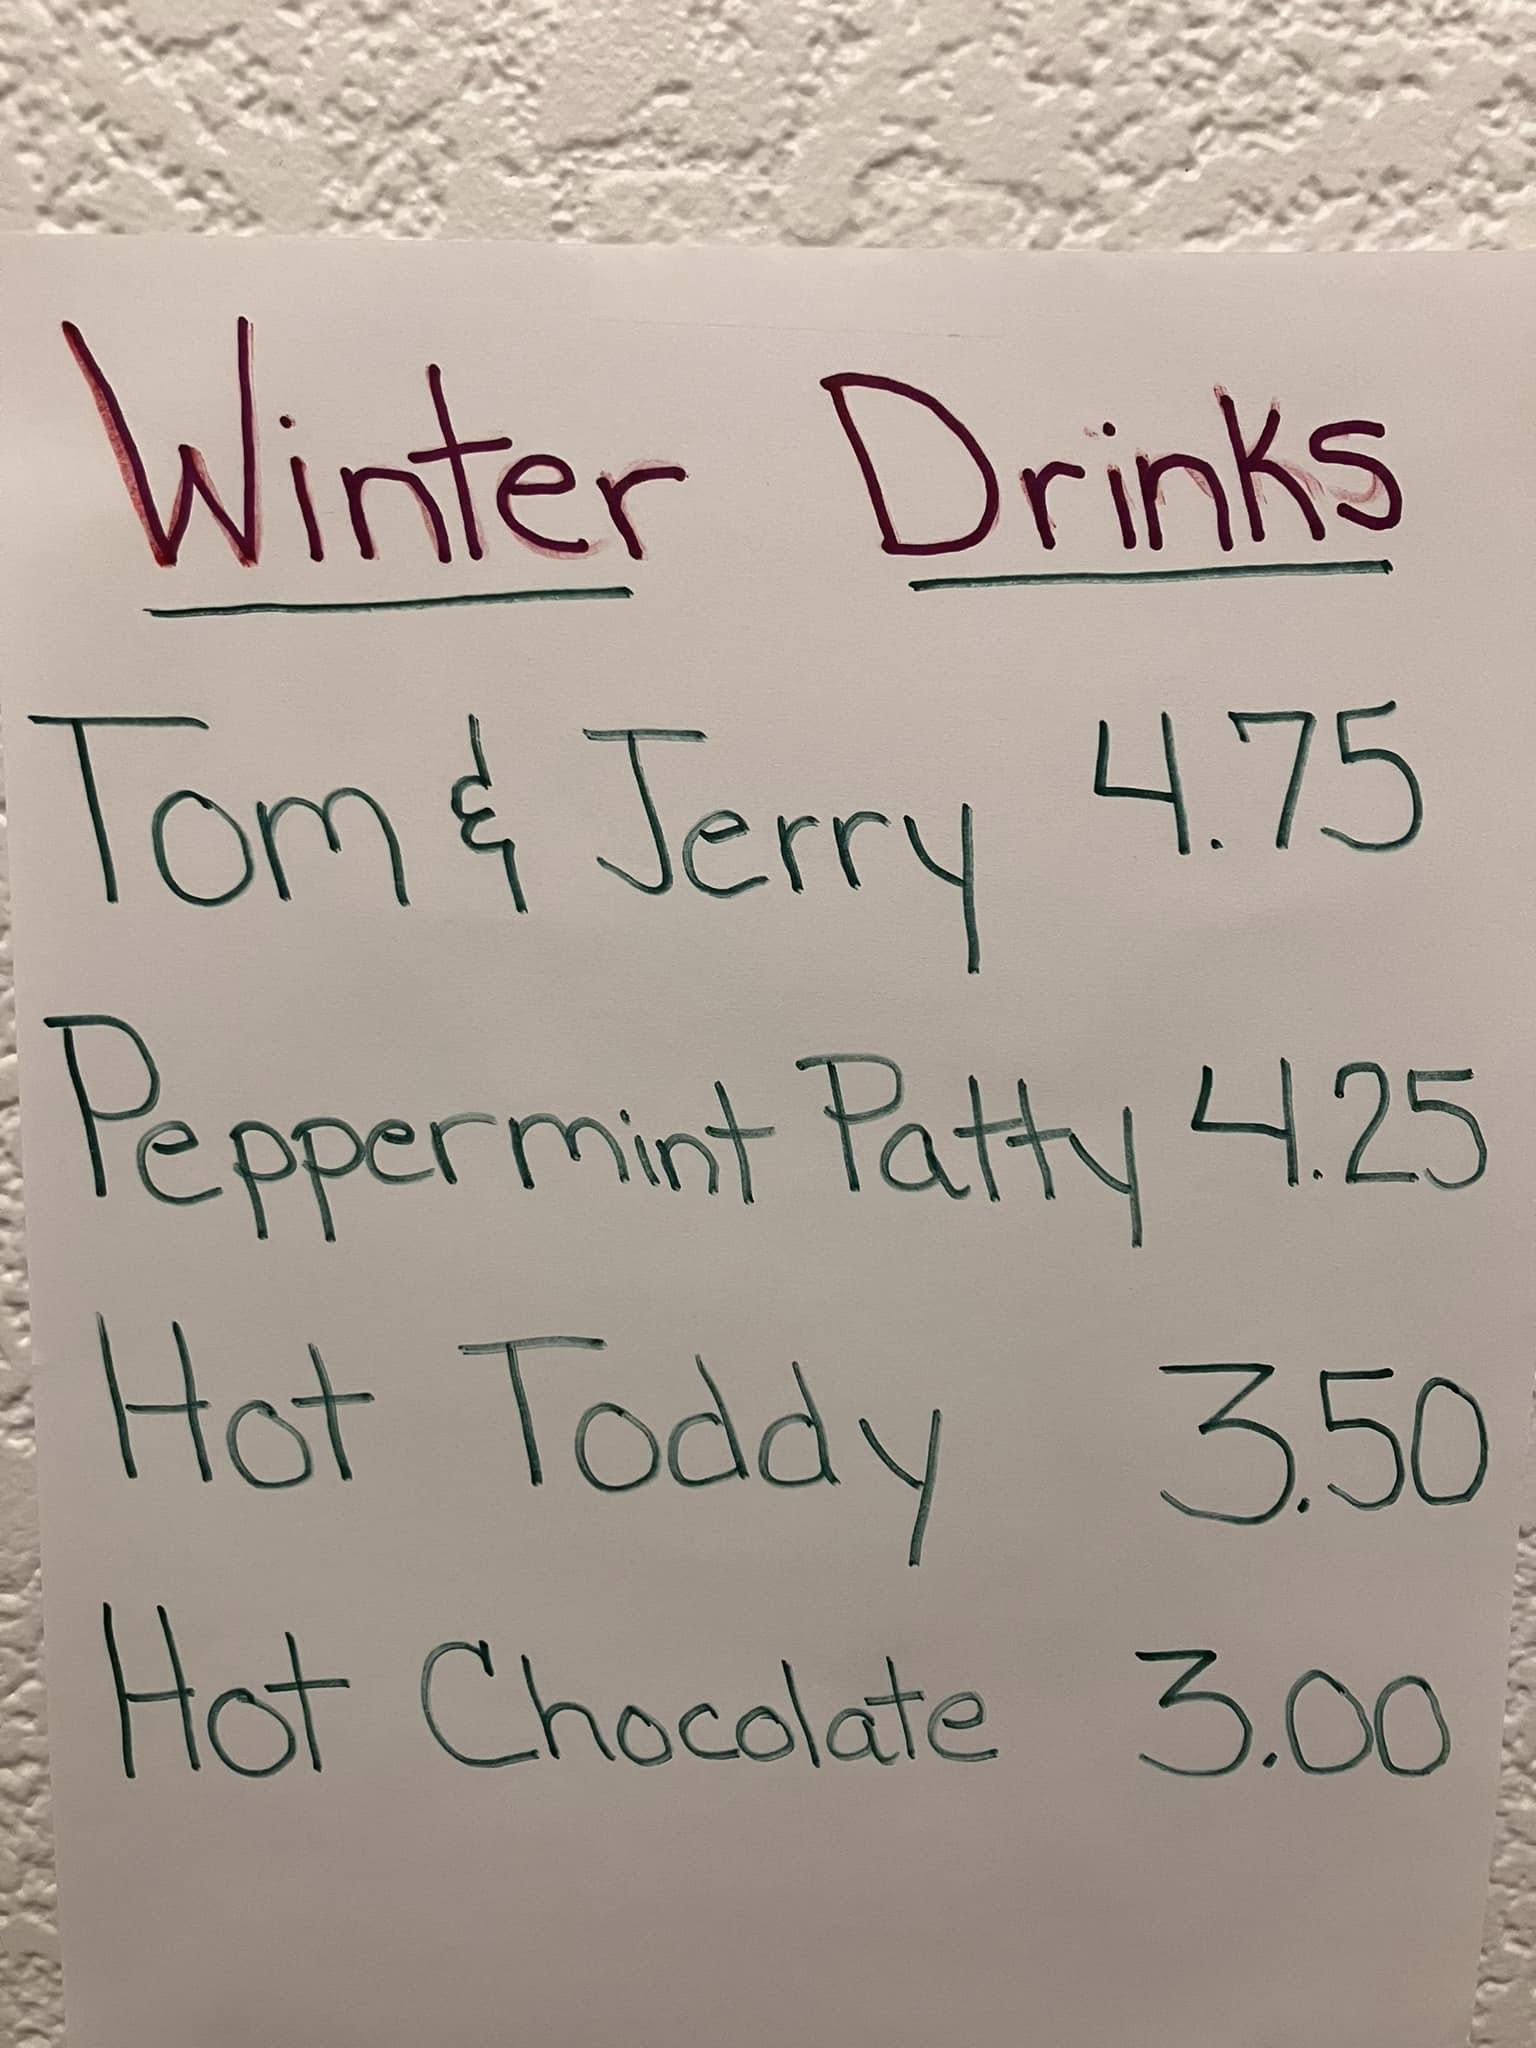 Winter Drinks
Tom & Jerry 4.75
Peppermint Patty 4.25
Hot Toddy 3.50
Hot Chocolate 3.00